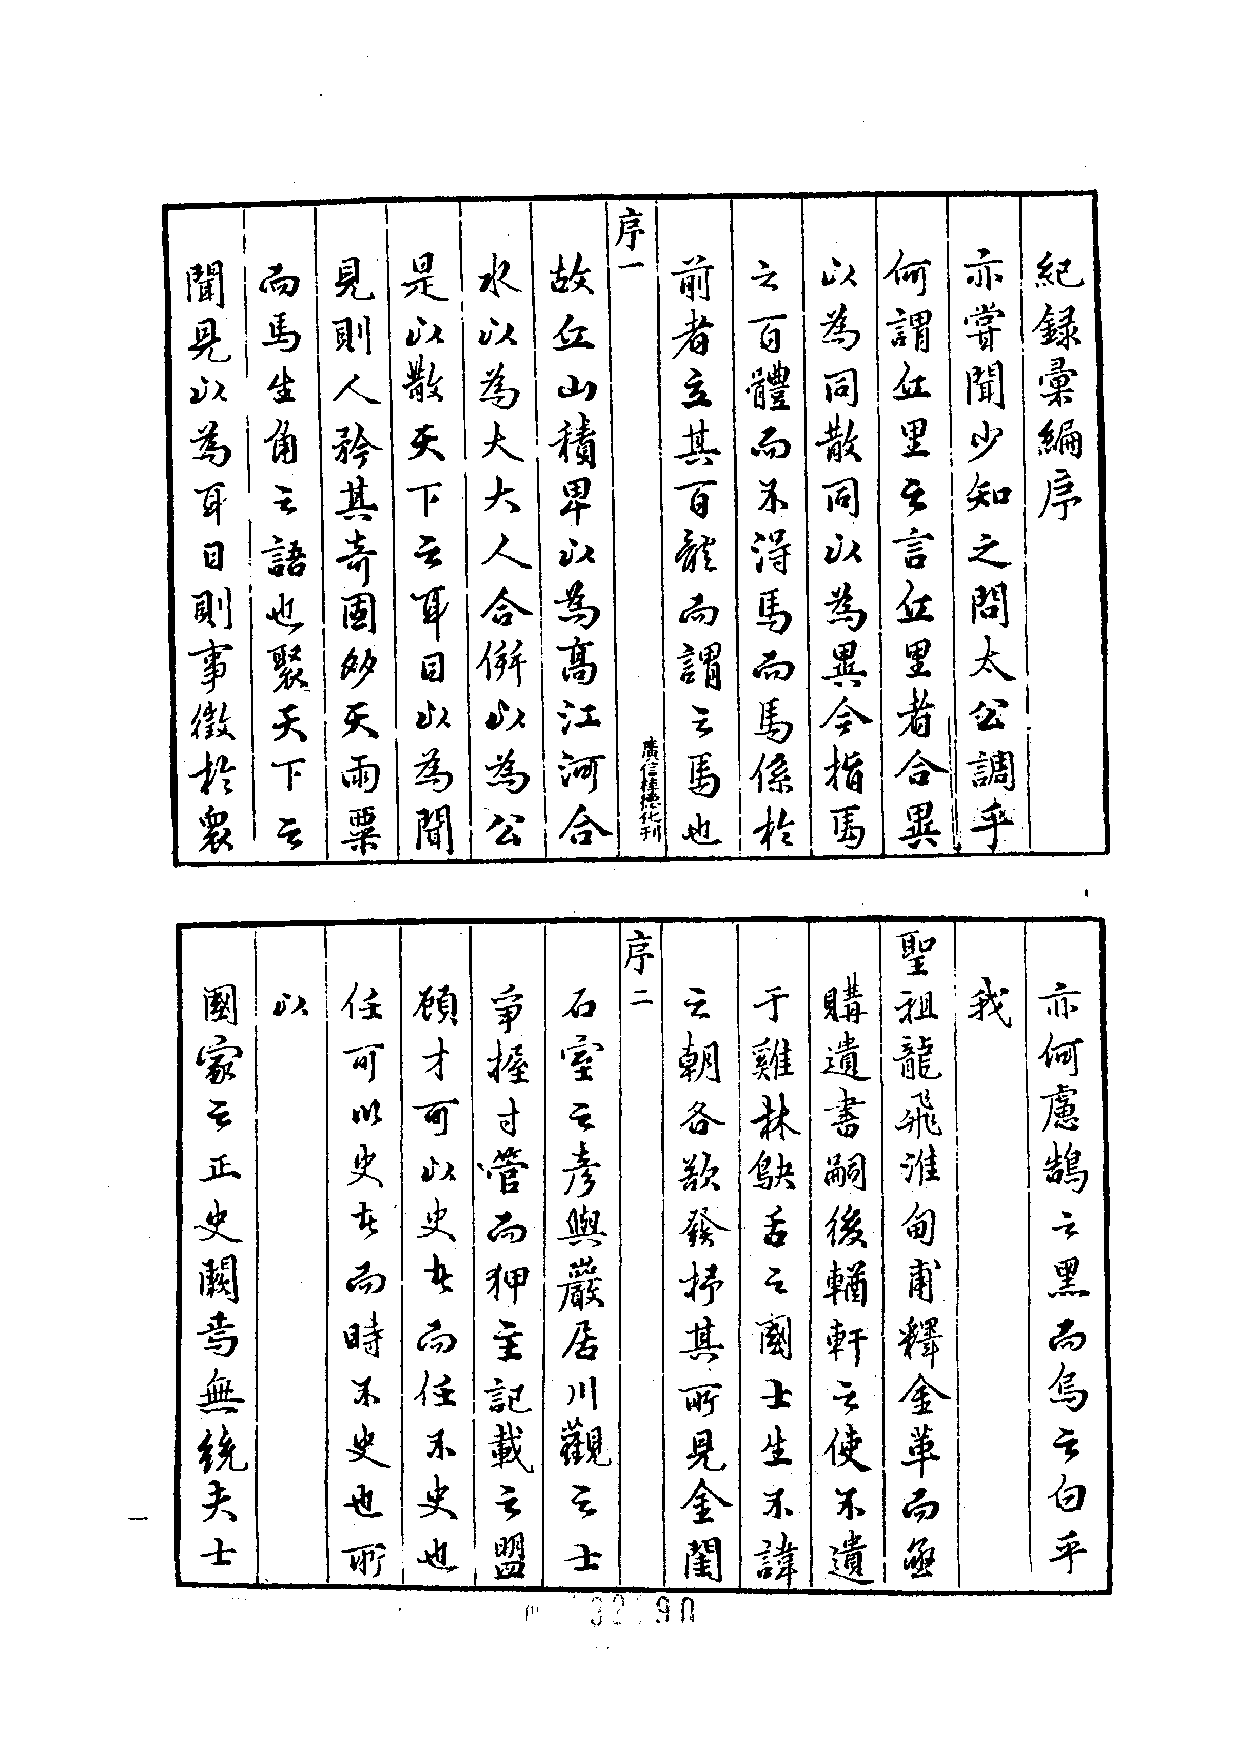 紀録彙編序
亦嘗聞少知之問太公調乎
何謂丘里之言丘里者合異
以為同散同以為異今指馬
之百體而不得馬而馬係於
前者立其百體而謂之馬也
序一
廣信桂德化刊
故丘山積卑以為高江河合
水以為大大人合併以為公
是以散天下之耳目以為聞
見則人矜其奇固多天雨粟
而馬生角之語也聚天下之
聞見以為耳目則事徵於衆
亦何慮鵠之黑而烏之白乎
我
聖祖龍飛淮甸甫釋金革而亟
購遺書嗣後輶軒之使不遺
于雞林鴃舌之國士生不諱
之朝各欲發抒其所見金閨
序二
石室之彦與巖居川觀之士
爭握寸管而狎主記載之盟
顧才可以史者而任不史也
任可以史者而時不史也所
以
國家之正史闕焉無統夫士
一